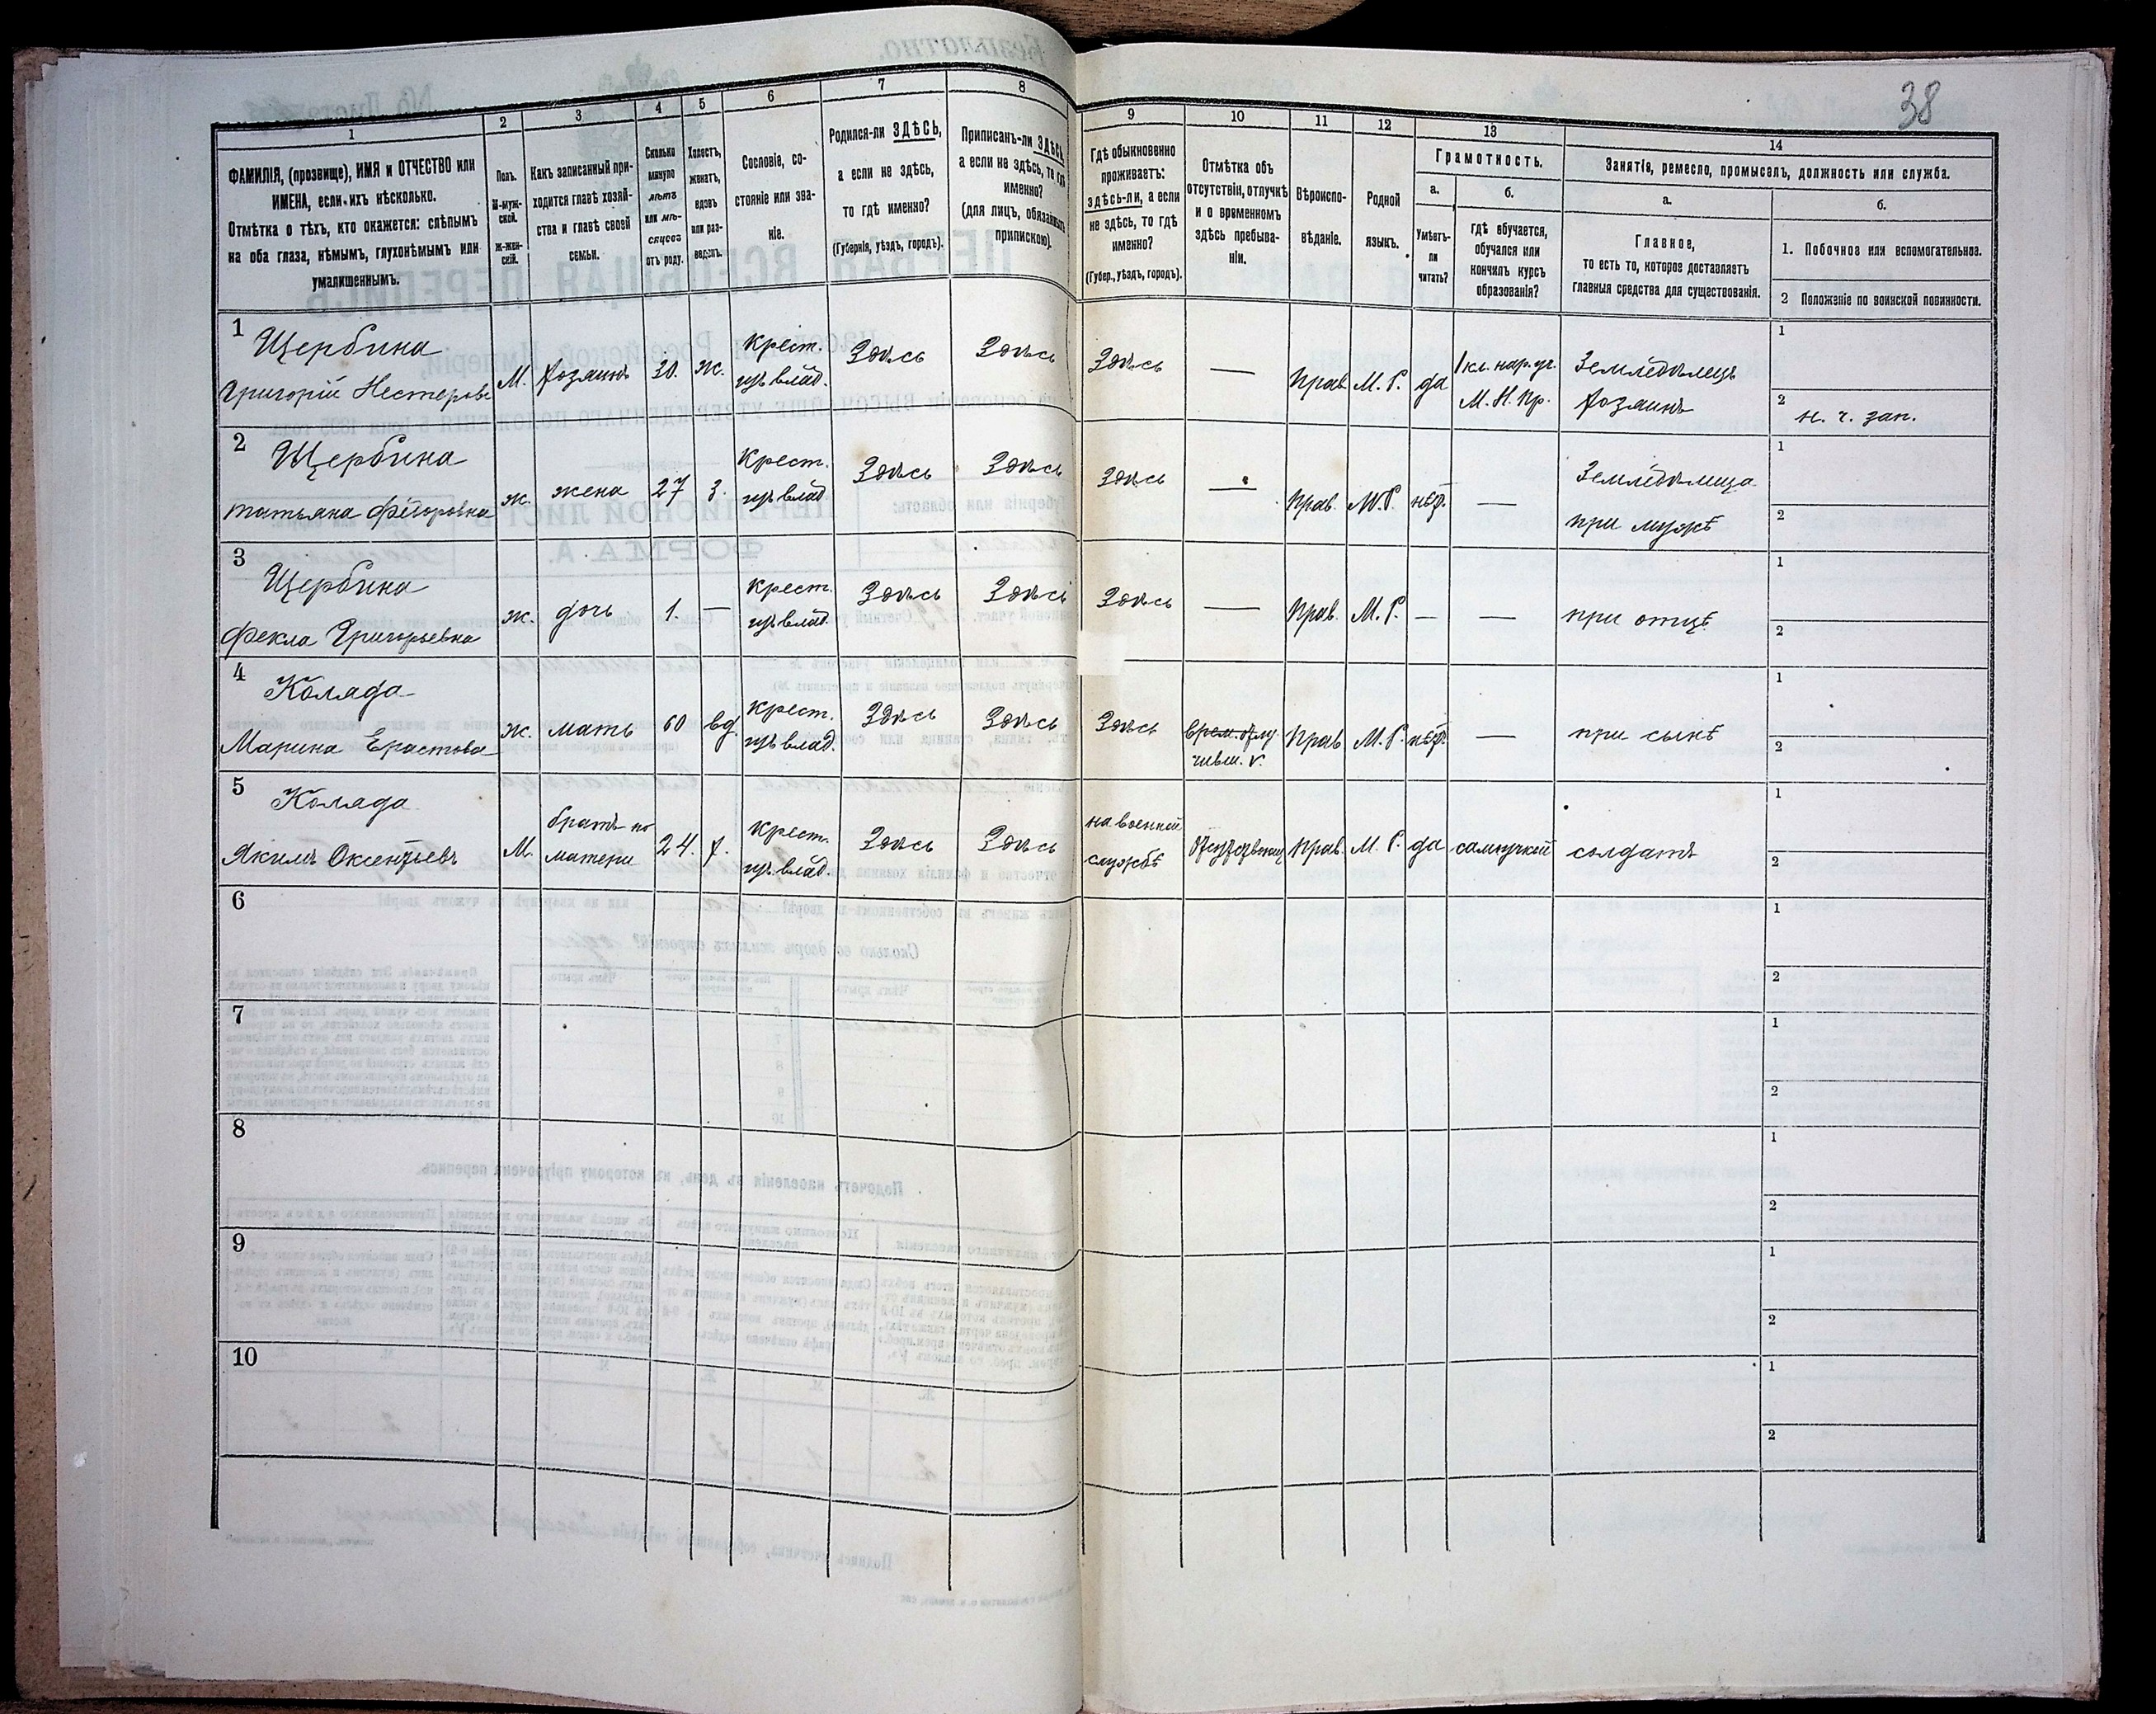 38
1
2
3
4
5
6
7
8
9
10
11
12
13
14
ФАМИЛІЯ, (прозвище), ИМЯ и ОТЧЕСТВО или
ИМЕНА, если ихъ нѣсколько.
Отмѣтка о тѣхъ, кто окажется: слѣпымъ
на оба глаза, нѣмымъ, глухонѣмымъ или
умалишеннымъ.
Полъ.
М-муж-
ской.
Ж-жен-
скій.
Какъ записанный при-
ходится главѣ хозяй-
ства и главѣ своей
семьи.
Сколько
минуло
лѣтъ
или мѣ-
сяцевъ
отъ роду.
Холостъ,
женатъ,
вдовъ
или раз-
веденъ.
Сословіе, со-
стояніе или зва-
ніе.
Родился-ли ЗДѢСЬ,
а если не здѣсь,
то гдѣ именно?
(Губернія, уѣздъ, городъ).
Приписанъ-ли ЗДѢСЬ,
а если не здѣсь, то гдѣ
именно?
(для лицъ, обязанныхъ
припискою).
Гдѣ обыкновенно
проживаетъ:
здѣсь-ли, а если
не здѣсь, то гдѣ
именно?
(Губер., уѣздъ, городъ).
Отмѣтка объ
отсутствіи, отлучкѣ
и о временномъ
здѣсь пребыва-
ніи.
Вѣроиспо-
вѣданіе.
Родной
языкъ.
Грамотность.
а.
Умѣетъ-
ли
читать?
б.
гдѣ обучается,
обучался или
кончилъ курсъ
образованія?
Занятіе, ремесло, промыселъ, должность или служба.
а.
Главное,
то есть то, которое доставляетъ
главныя средства для существованія.
б.
1. Побочное или вспомогательное.
2 Положеніе по воинской повинности.
1
Щербина
Григорій Нестеровъ
М.
хозяинъ
30.
ж.
крест.
изъ влад.
Здѣсь
Здѣсь
Здѣсь
—
прав.
М. Р.
да
1 кл. нар. уч.
М. Н. Пр.
Земледѣлецъ
хозяинъ
1
2
н. ч. зап.
2
Щербина
татьяна Фёдоровна
ж.
жена
27
З.
крест.
изъ влад.
Здѣсь
Здѣсь
Здѣсь
—
прав.
М. Р.
нѣт.
—
Земледѣлица
при мужѣ
1
2
3
Щербина
Фекла Григорьевна
ж.
дочь
1.
—
крест.
изъ влад.
Здѣсь
Здѣсь
Здѣсь
—
прав.
М. Р.
—
—
при отцѣ
1
2
4
Коляда
Марина Ерастова
ж.
мать
60
вд.
крест.
изъ влад.
Здѣсь
Здѣсь
Здѣсь
врем. отлу-
чивш. v.
прав.
М. Р.
нѣт.
—
при сынѣ
1
2
5
Коляда
Якимъ Оксентьевъ
М.
братъ по
матери
24.
х.
крест.
изъ влад.
Здѣсь
Здѣсь
на военной
службѣ
прав.
М. Р.
да
самоучкой
солдатъ
1
2
6
1
2
7
1
2
8
1
2
9
1
2
10
1
2